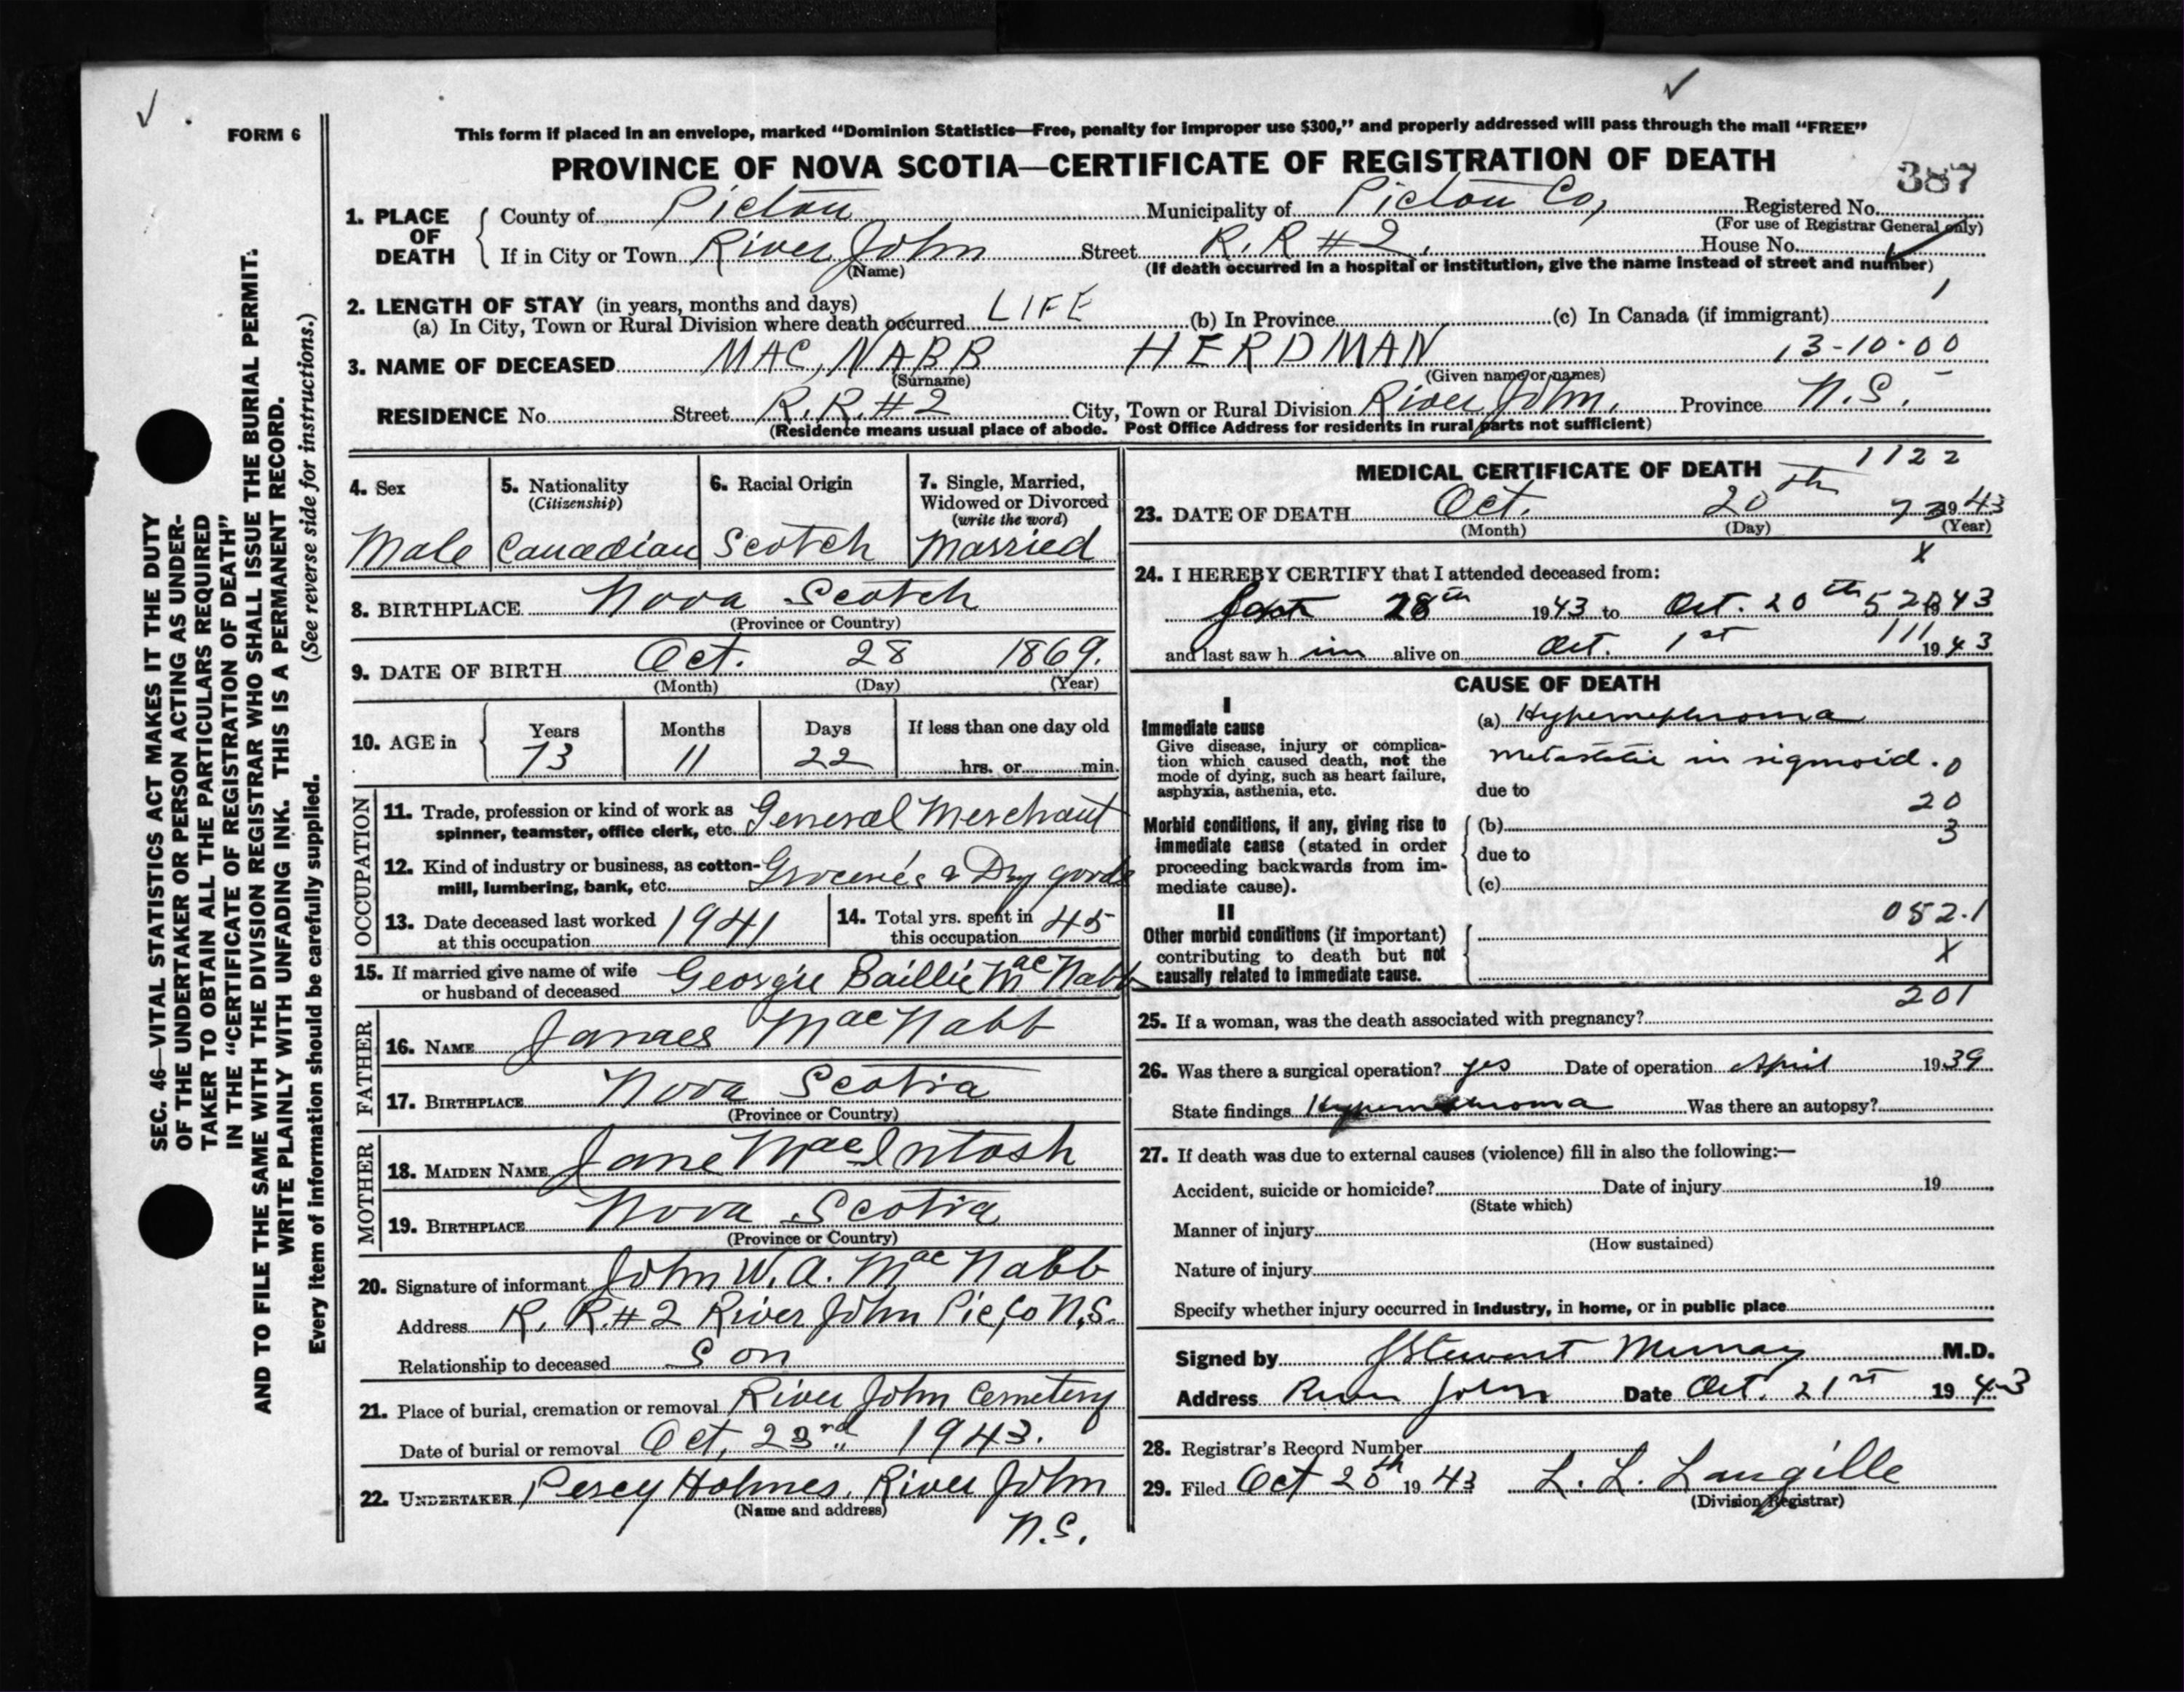 FORM 6
This form if placed in an envelope, marked “Dominion Statistics—Free, penalty for improper use $300,” and properly addressed will pass through the mail “FREE”
PROVINCE OF NOVA SCOTIA—CERTIFICATE OF REGISTRATION OF DEATH
387
1. PLACE OF DEATH County of Pictou Municipality of Pictou Co, Registered No.
(For use of Registrar General only)
If in City or Town River John Street R. R #2. House No.
(Name) (If death occurred in a hospital or institution, give the name instead of street and number)
2. LENGTH OF STAY (in years, months and days)
(a) In City, Town or Rural Division where death occurred LIFE (b) In Province (c) In Canada (if immigrant)
3. NAME OF DECEASED MAC, NABB HERDMAN 13-10-00
(Surname) (Given name or names)
RESIDENCE No. Street R. R. #2 City, Town or Rural Division River John. Province N.S.
(Residence means usual place of abode. Post Office Address for residents in rural parts not sufficient)
4. Sex Male
5. Nationality (Citizenship) Canadian
6. Racial Origin Scotch
7. Single, Married, Widowed or Divorced (write the word) Married
8. BIRTHPLACE Nova Scotch
(Province or Country)
9. DATE OF BIRTH Oct. 28 1869.
(Month) (Day) (Year)
10. AGE in Years Months Days If less than one day old
73 11 22 hrs. or min.
OCCUPATION
11. Trade, profession or kind of work as spinner, teamster, office clerk, etc. General Merchant
12. Kind of industry or business, as cotton-mill, lumbering, bank, etc. Groceries & Dry goods
13. Date deceased last worked at this occupation 1941
14. Total yrs. spent in this occupation 45
15. If married give name of wife or husband of deceased Georgie Baillie MacNabb
FATHER
16. NAME James MacNabb
17. BIRTHPLACE Nova Scotia
(Province or Country)
MOTHER
18. MAIDEN NAME Jane MacIntosh
19. BIRTHPLACE Nova Scotia
(Province or Country)
20. Signature of informant John W. A. MacNabb
Address R. R. #2 River John Pic, Co N.S.
Relationship to deceased Son
21. Place of burial, cremation or removal River John Cemetery
Date of burial or removal Oct, 23rd 1943.
22. UNDERTAKER Percy Holmes, River John
(Name and address)
N.S.
MEDICAL CERTIFICATE OF DEATH 1122
23. DATE OF DEATH Oct. 20th 73 1943
(Month) (Day) (Year)
X
24. I HEREBY CERTIFY that I attended deceased from:
Sept 28th 1943 to Oct. 20th 52 1943
and last saw him alive on Oct. 1st 111 1943
CAUSE OF DEATH
I
Immediate cause
Give disease, injury or complication which caused death, not the mode of dying, such as heart failure, asphyxia, asthenia, etc.
(a) Hypernephroma
metastatic in sigmoid. 0
due to
20
Morbid conditions, if any, giving rise to immediate cause (stated in order proceeding backwards from immediate cause).
(b) 3
due to
(c)
II
052.1
Other morbid conditions (if important) contributing to death but not causally related to immediate cause.
X
201
25. If a woman, was the death associated with pregnancy?
26. Was there a surgical operation? yes Date of operation April 1939
State findings Hypernephroma Was there an autopsy?
27. If death was due to external causes (violence) fill in also the following:—
Accident, suicide or homicide? Date of injury 19
(State which)
Manner of injury
(How sustained)
Nature of injury
Specify whether injury occurred in industry, in home, or in public place
Signed by J Stewart Murray M.D.
Address River John Date Oct. 21st 1943
28. Registrar's Record Number
29. Filed Oct 20th 1943 L. L. Langille
(Division Registrar)
SEC. 46—VITAL STATISTICS ACT MAKES IT THE DUTY
OF THE UNDERTAKER OR PERSON ACTING AS UNDER-
TAKER TO OBTAIN ALL THE PARTICULARS REQUIRED
IN THE “CERTIFICATE OF REGISTRATION OF DEATH”
AND TO FILE THE SAME WITH THE DIVISION REGISTRAR WHO SHALL ISSUE THE BURIAL PERMIT.
WRITE PLAINLY WITH UNFADING INK. THIS IS A PERMANENT RECORD.
Every item of information should be carefully supplied. (See reverse side for instructions.)